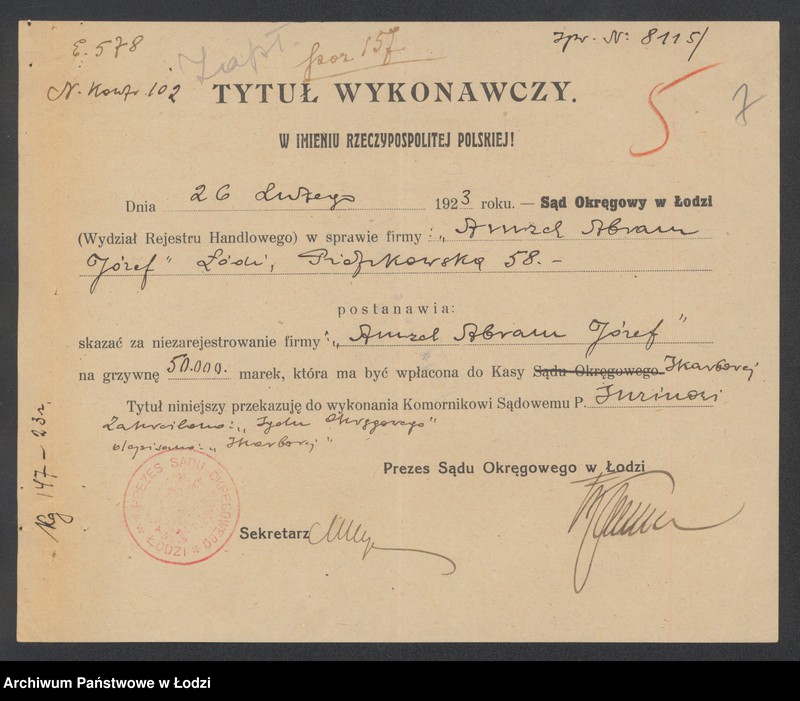 E. 578
Zapł.
poz 157
Zpr. N: 8115/
N. Kontr. 102
5
7
TYTUŁ WYKONAWCZY.
W IMIENIU RZECZYPOSPOLITEJ POLSKIEJ!
Dnia 26 Lutego 1923 roku. — Sąd Okręgowy w Łodzi
(Wydział Rejestru Handlowego) w sprawie firmy: „Amzel Abram
Józef” Łódź, Piotrkowska 58. –
postanawia:
skazać za niezarejestrowanie firmy: „Amzel Abram Józef”
na grzywnę 50.000. marek, która ma być wpłacona do Kasy Sądu Okręgowego Skarbowej
Tytuł niniejszy przekazuję do wykonania Komornikowi Sądowemu P.
Zakreślono: „Sądu Okręgowego”
nadpisano: „Skarbowej”
Prezes Sądu Okręgowego w Łodzi
Sekretarz
PREZES SĄDU OKRĘGOWEGO w ŁODZI
Kg 147 – 23 r.
Archiwum Państwowe w Łodzi